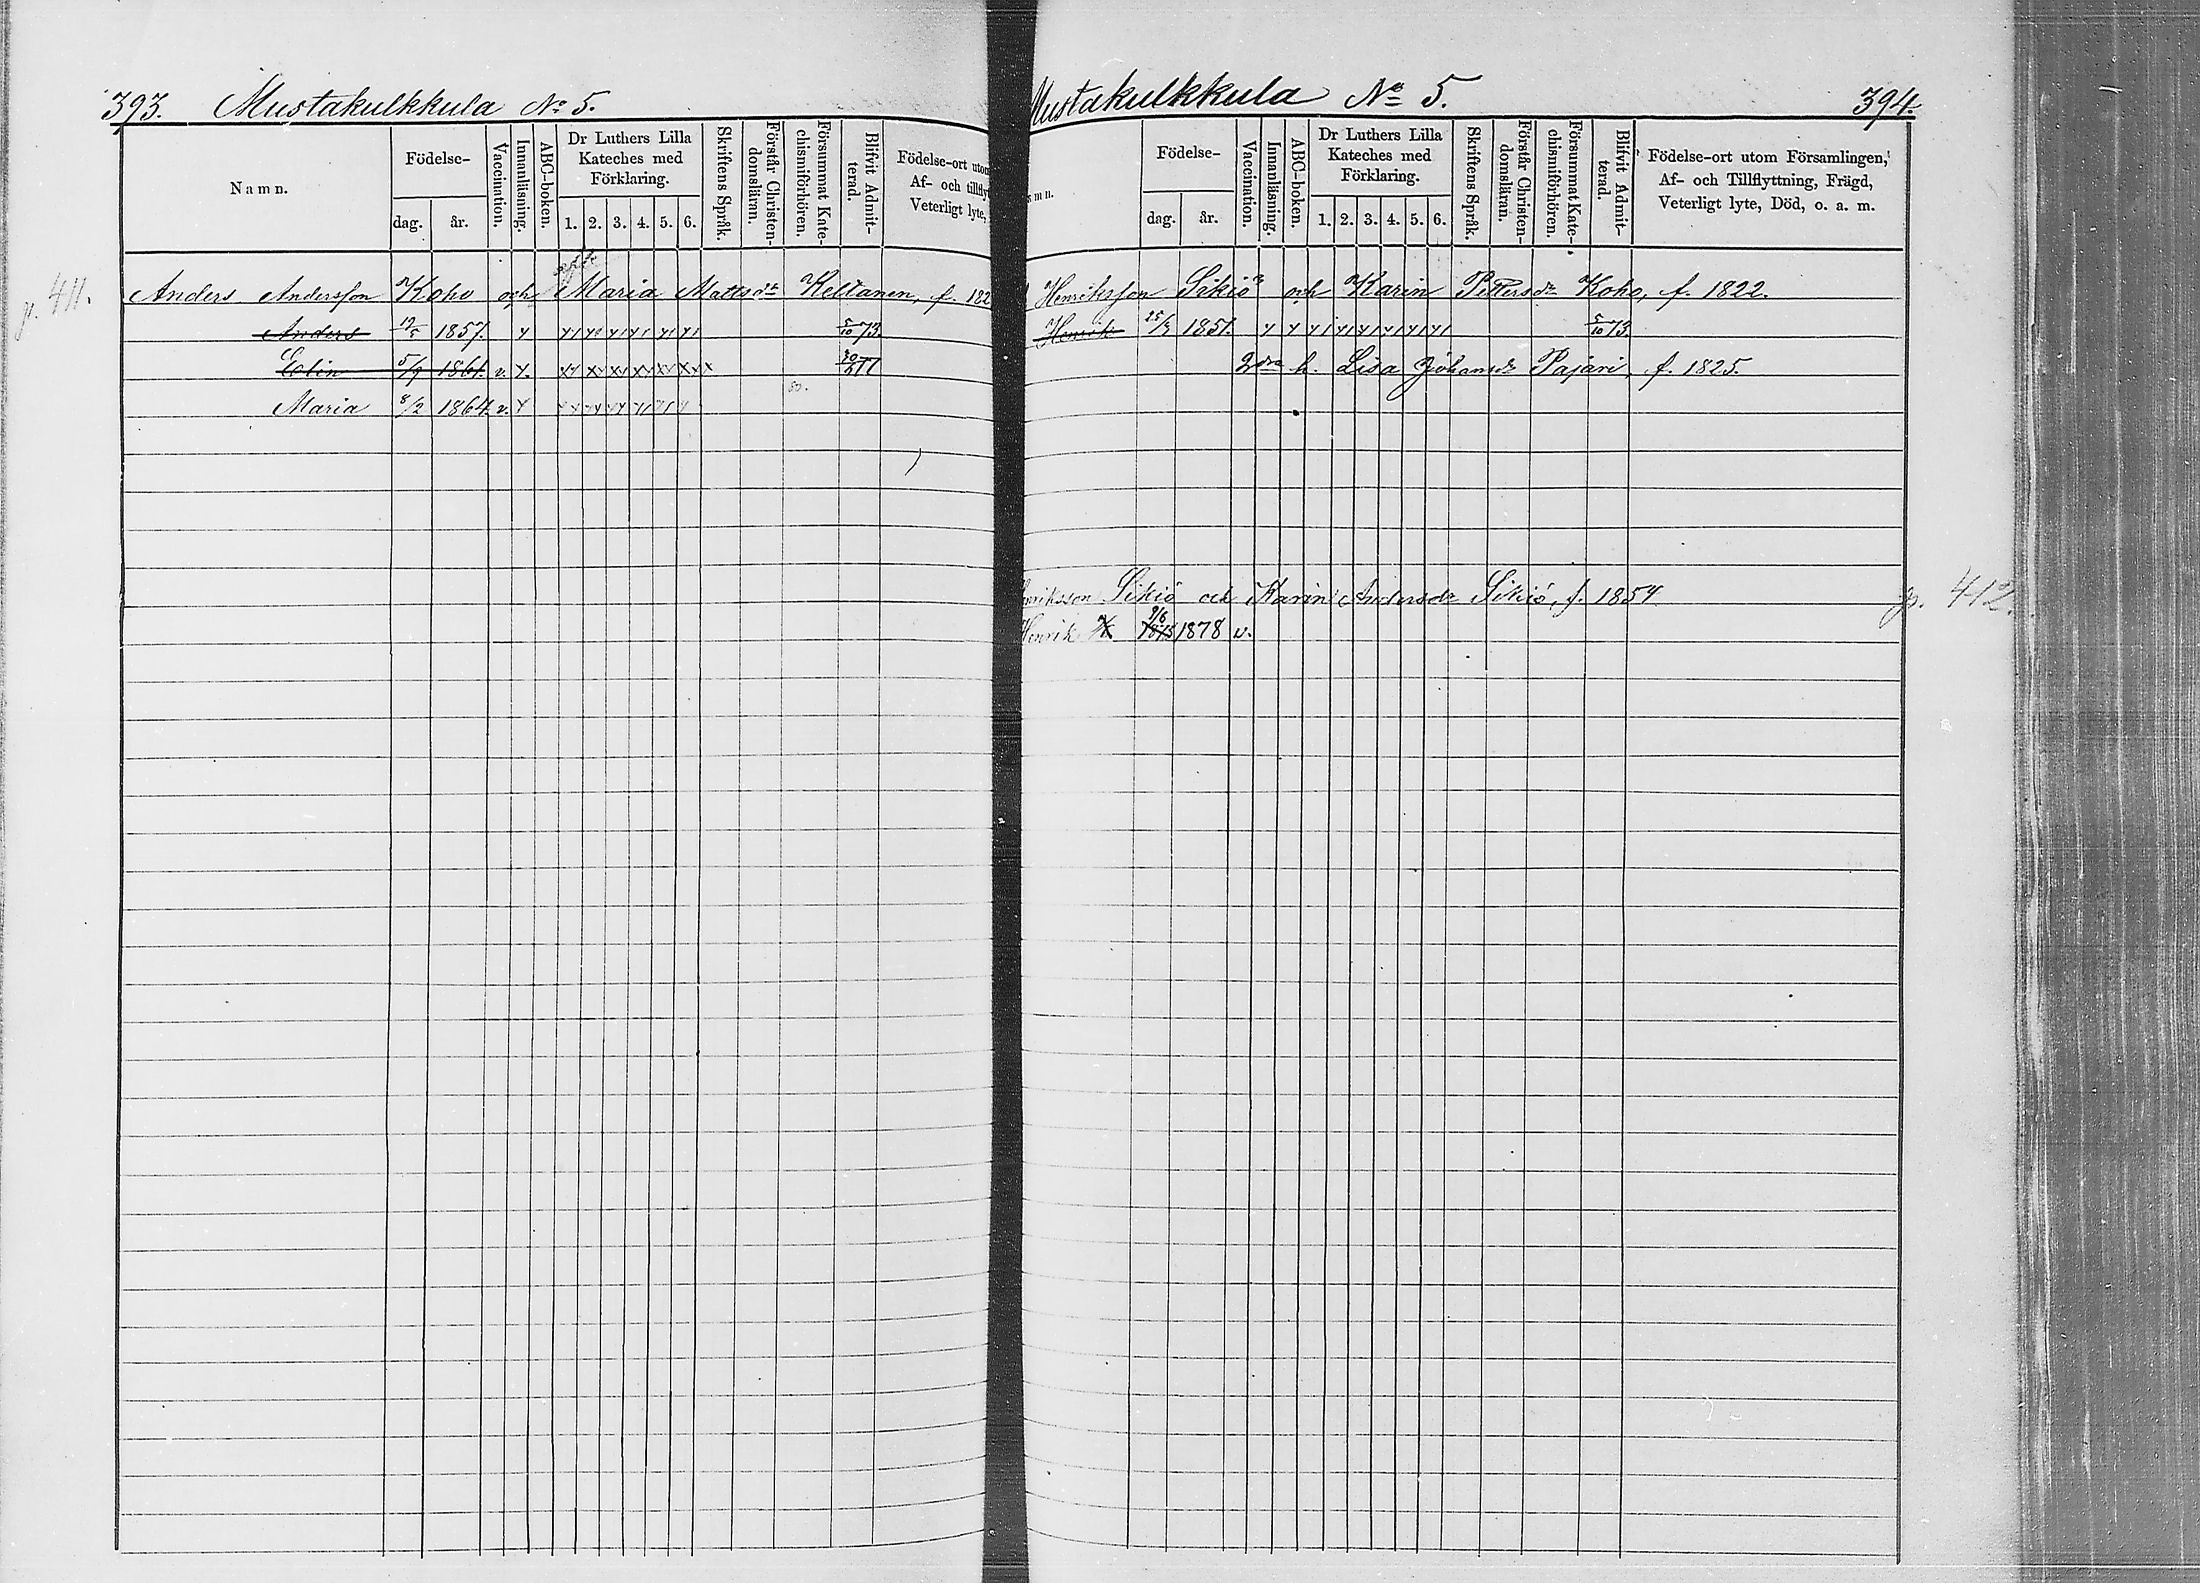 393. Mustakulkkula No 5.
Namn.
Födelse-
dag. år.
Vaccination.
Innanläsning.
ABC-boken.
Dr Luthers Lilla
Kateches med
Förklaring.
1. 2. 3. 4. 5. 6.
Skriftens Språk.
Förstår Christen-
domsläran.
Försummat Kate-
chismiförhören.
Blifvit Admit-
terad.
Födelse-ort utom
Af- och tillfly
Veterligt lyte,
p. 411.
Anders Andersson Koho och Maria Mattsdr Keltanen, f. 182
Anders 19/5 1857. y y1 y1 y1 y1 y1 y1 5/10 73.
Elin 5/9 1861. v. y. 77
Maria 8/2 1864. v. y
Mustakulkkula No 5. 394.
mn.
Födelse-
dag. år.
Vaccination.
Innanläsning.
ABC-boken.
Dr Luthers Lilla
Kateches med
Förklaring.
1. 2. 3. 4. 5. 6.
Skriftens Språk.
Förstår Christen-
domsläran.
Försummat Kate-
chismiförhören.
Blifvit Admit-
terad.
Födelse-ort utom Församlingen,
Af- och Tillflyttning, Frägd,
Veterligt lyte, Död, o. a. m.
Henriksson Sikiö och Karin Pettersdr Koho, f. 1822.
Henrik 25/7 1851. y y y1 y1 y1 y1 y1 y1 5/10 73.
2dra h. Lisa Johansdr Pajari, f. 1825.
nriksson Sikiö och Karin Andersdr Sikiö, f. 1854
p. 412.
Henrik 9/6 1878 v.